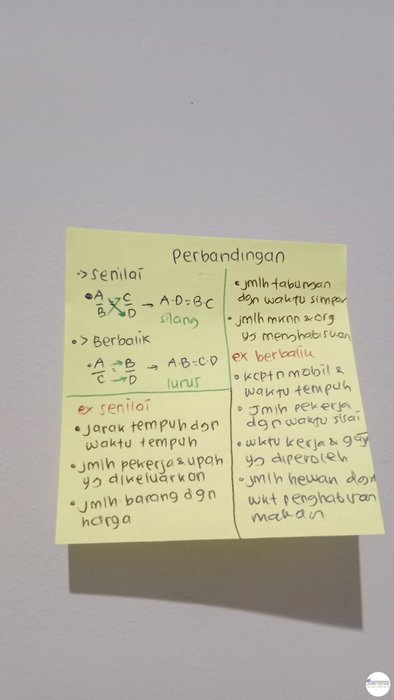 Perbandingan
-> senilai
• A/B = C/D → A·D = B·C
silang
• > Berbalik
• A/C = B/D → A·B = C·D
lurus
ex senilai
• jarak tempuh dgn
waktu tempuh
• jmlh pekerja & upah
yg dikeluarkan
• jmlh barang dgn
harga
• jmlh tabungan
dgn waktu simpan
• jmlh mknn & org
yg menghabiskan
ex berbalik
• kcptn mobil &
waktu tempuh
• jmlh pekerja
dgn waktu slsai
• wktu kerja & gaji
yg diperoleh
• jmlh hewan dgn
wkt penghabisan
makan